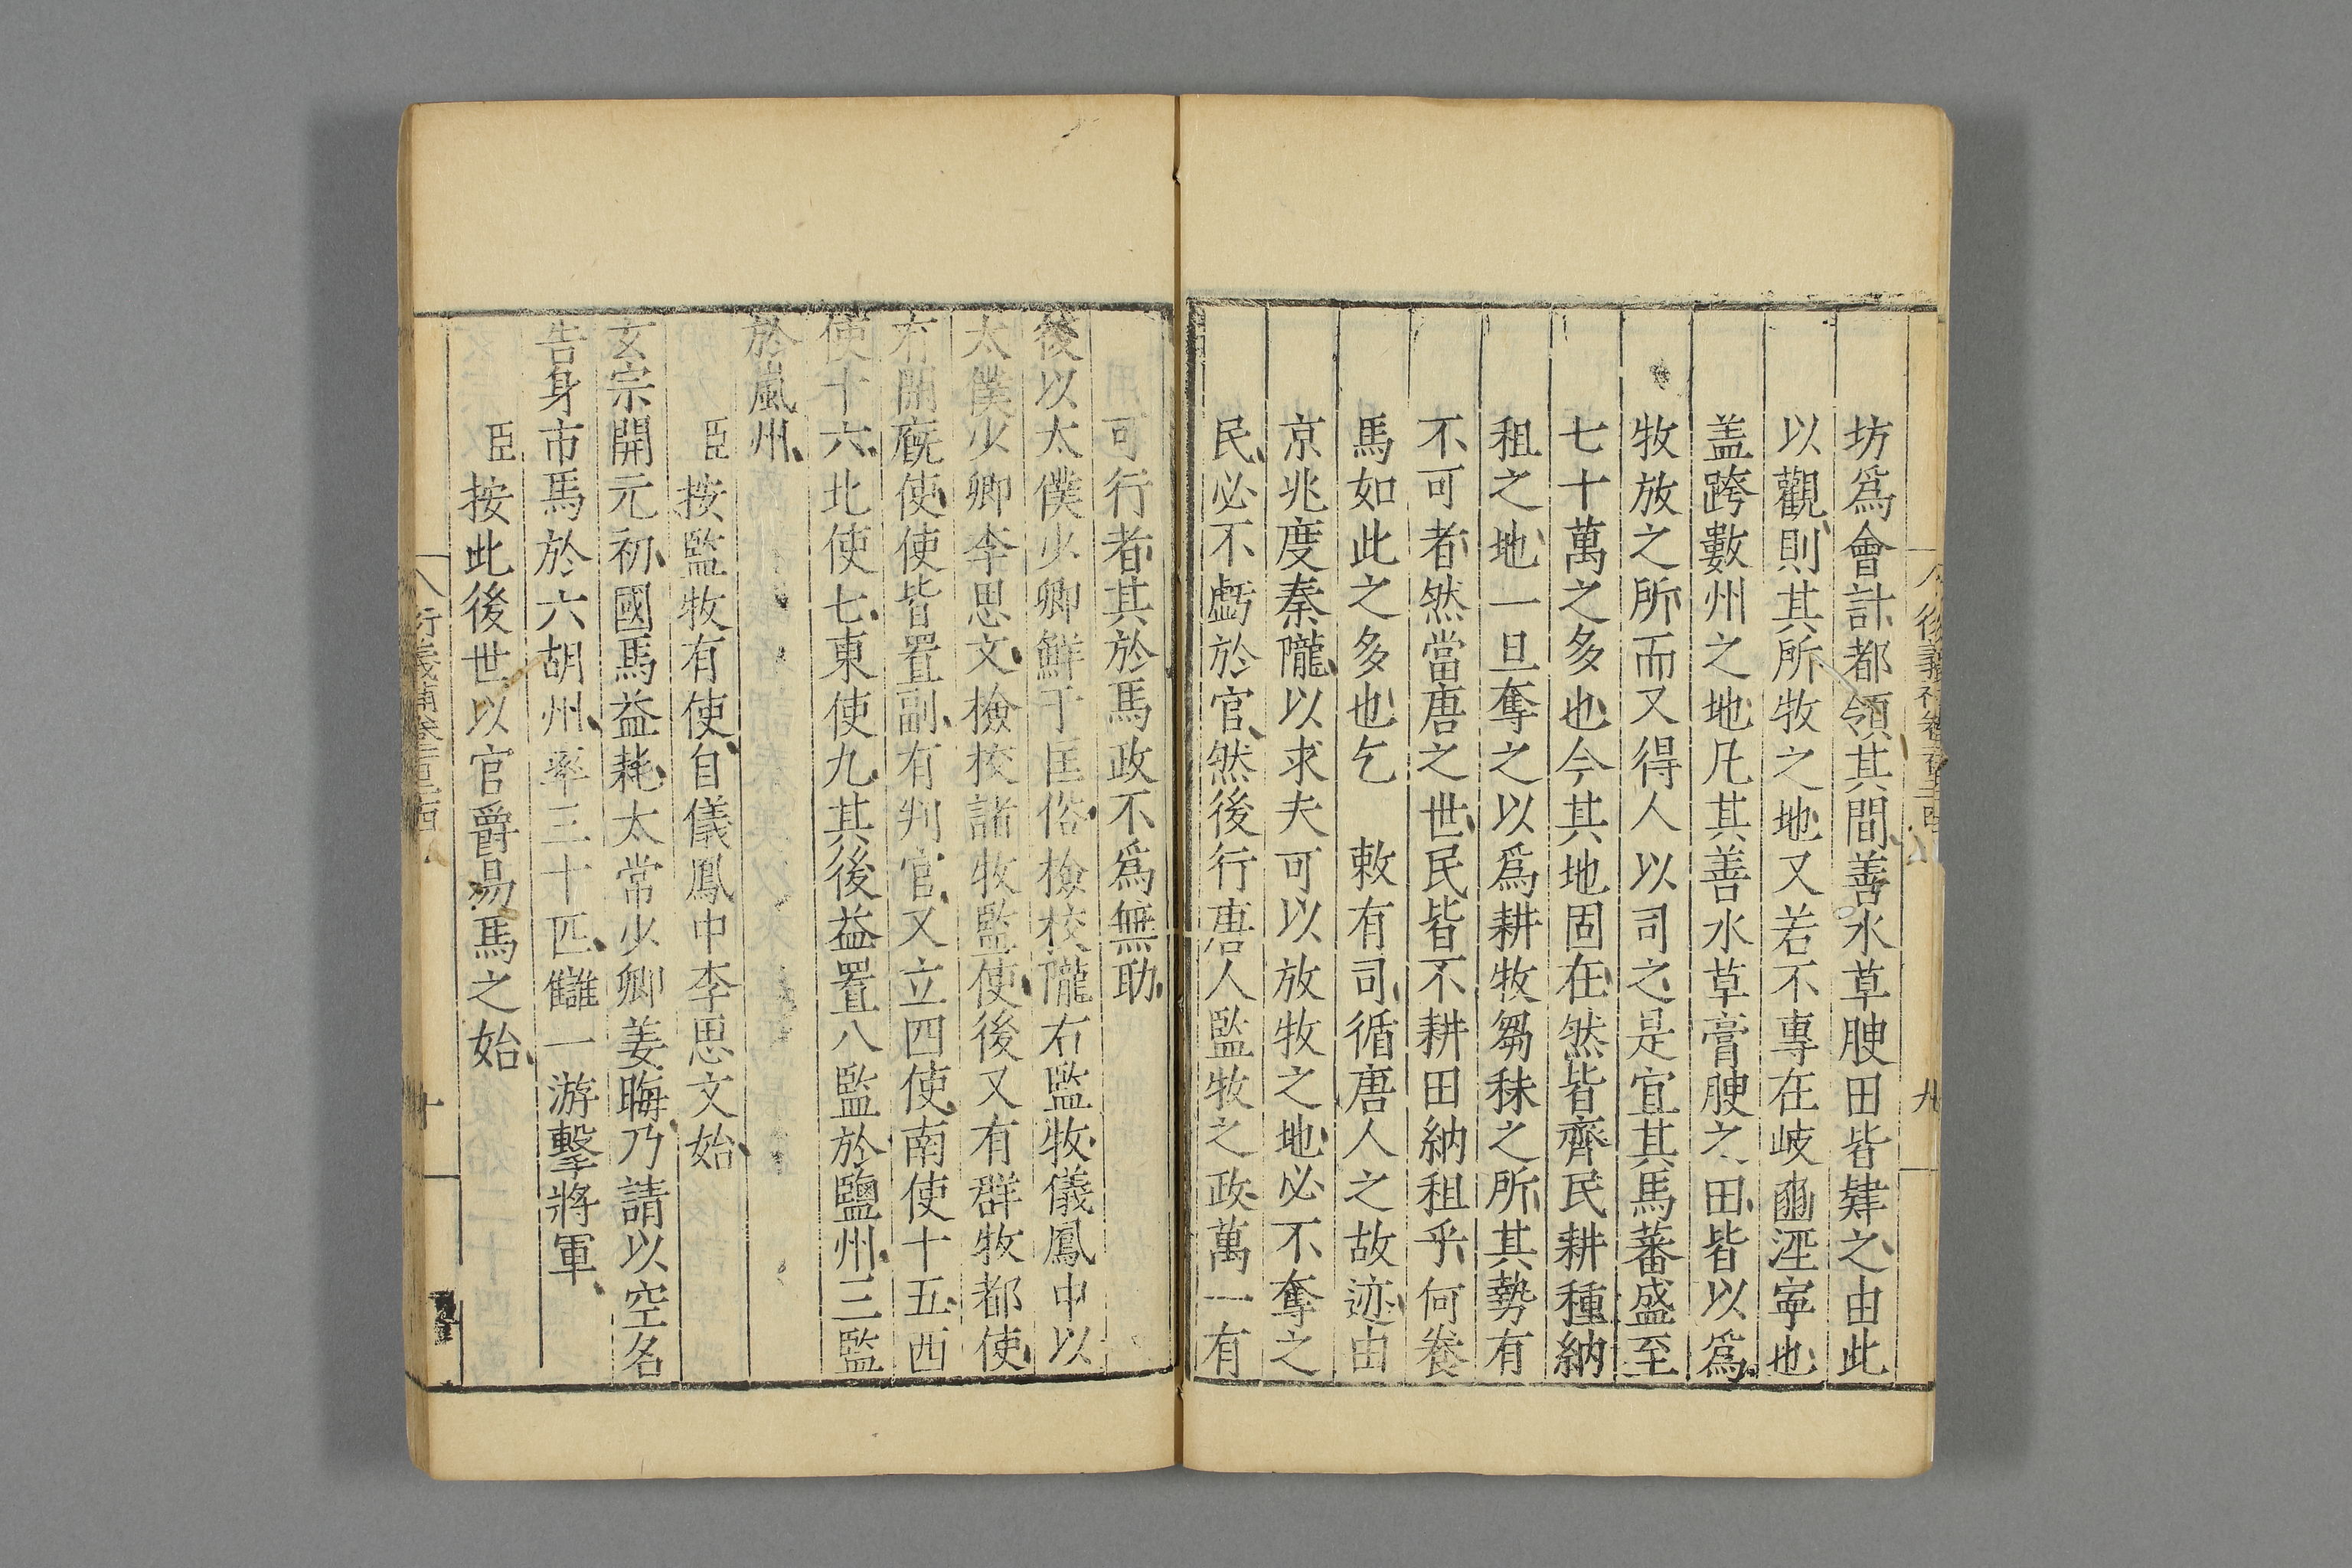 坊爲會計都領其間善水草腴田皆肄之由此
以觀則其所牧之地又若不專在岐豳涇寧也
盖跨數州之地凡其善水草膏腴之田皆以爲
牧放之所而又得人以司之是宜其馬蕃盛至
七十萬之多也今其地固在然皆齊民耕種納
租之地一旦奪之以爲耕牧芻秣之所其勢有
不可者然當唐之世民皆不耕田納租乎何養
馬如此之多也乞　敕有司循唐人之故迹由
京兆度秦隴以求夫可以放牧之地必不奪之
民必不虧於官然後行唐人監牧之政萬一有
可行者其於馬政不爲無助
後以太僕少卿鮮于匡俗檢校隴右監牧儀鳳中以
太僕少卿李思文檢校諸牧監使後又有群牧都使
有閑廐使使皆置副有判官又立四使南使十五西
使十六北使七東使九其後益置八監於鹽州三監
於嵐州
臣按監牧有使自儀鳳中李思文始
玄宗開元初國馬益耗太常少卿姜晦乃請以空名
告身市馬於六胡州率三十匹讎一游擊將軍
臣按此後世以官爵易馬之始
衍義補卷
十